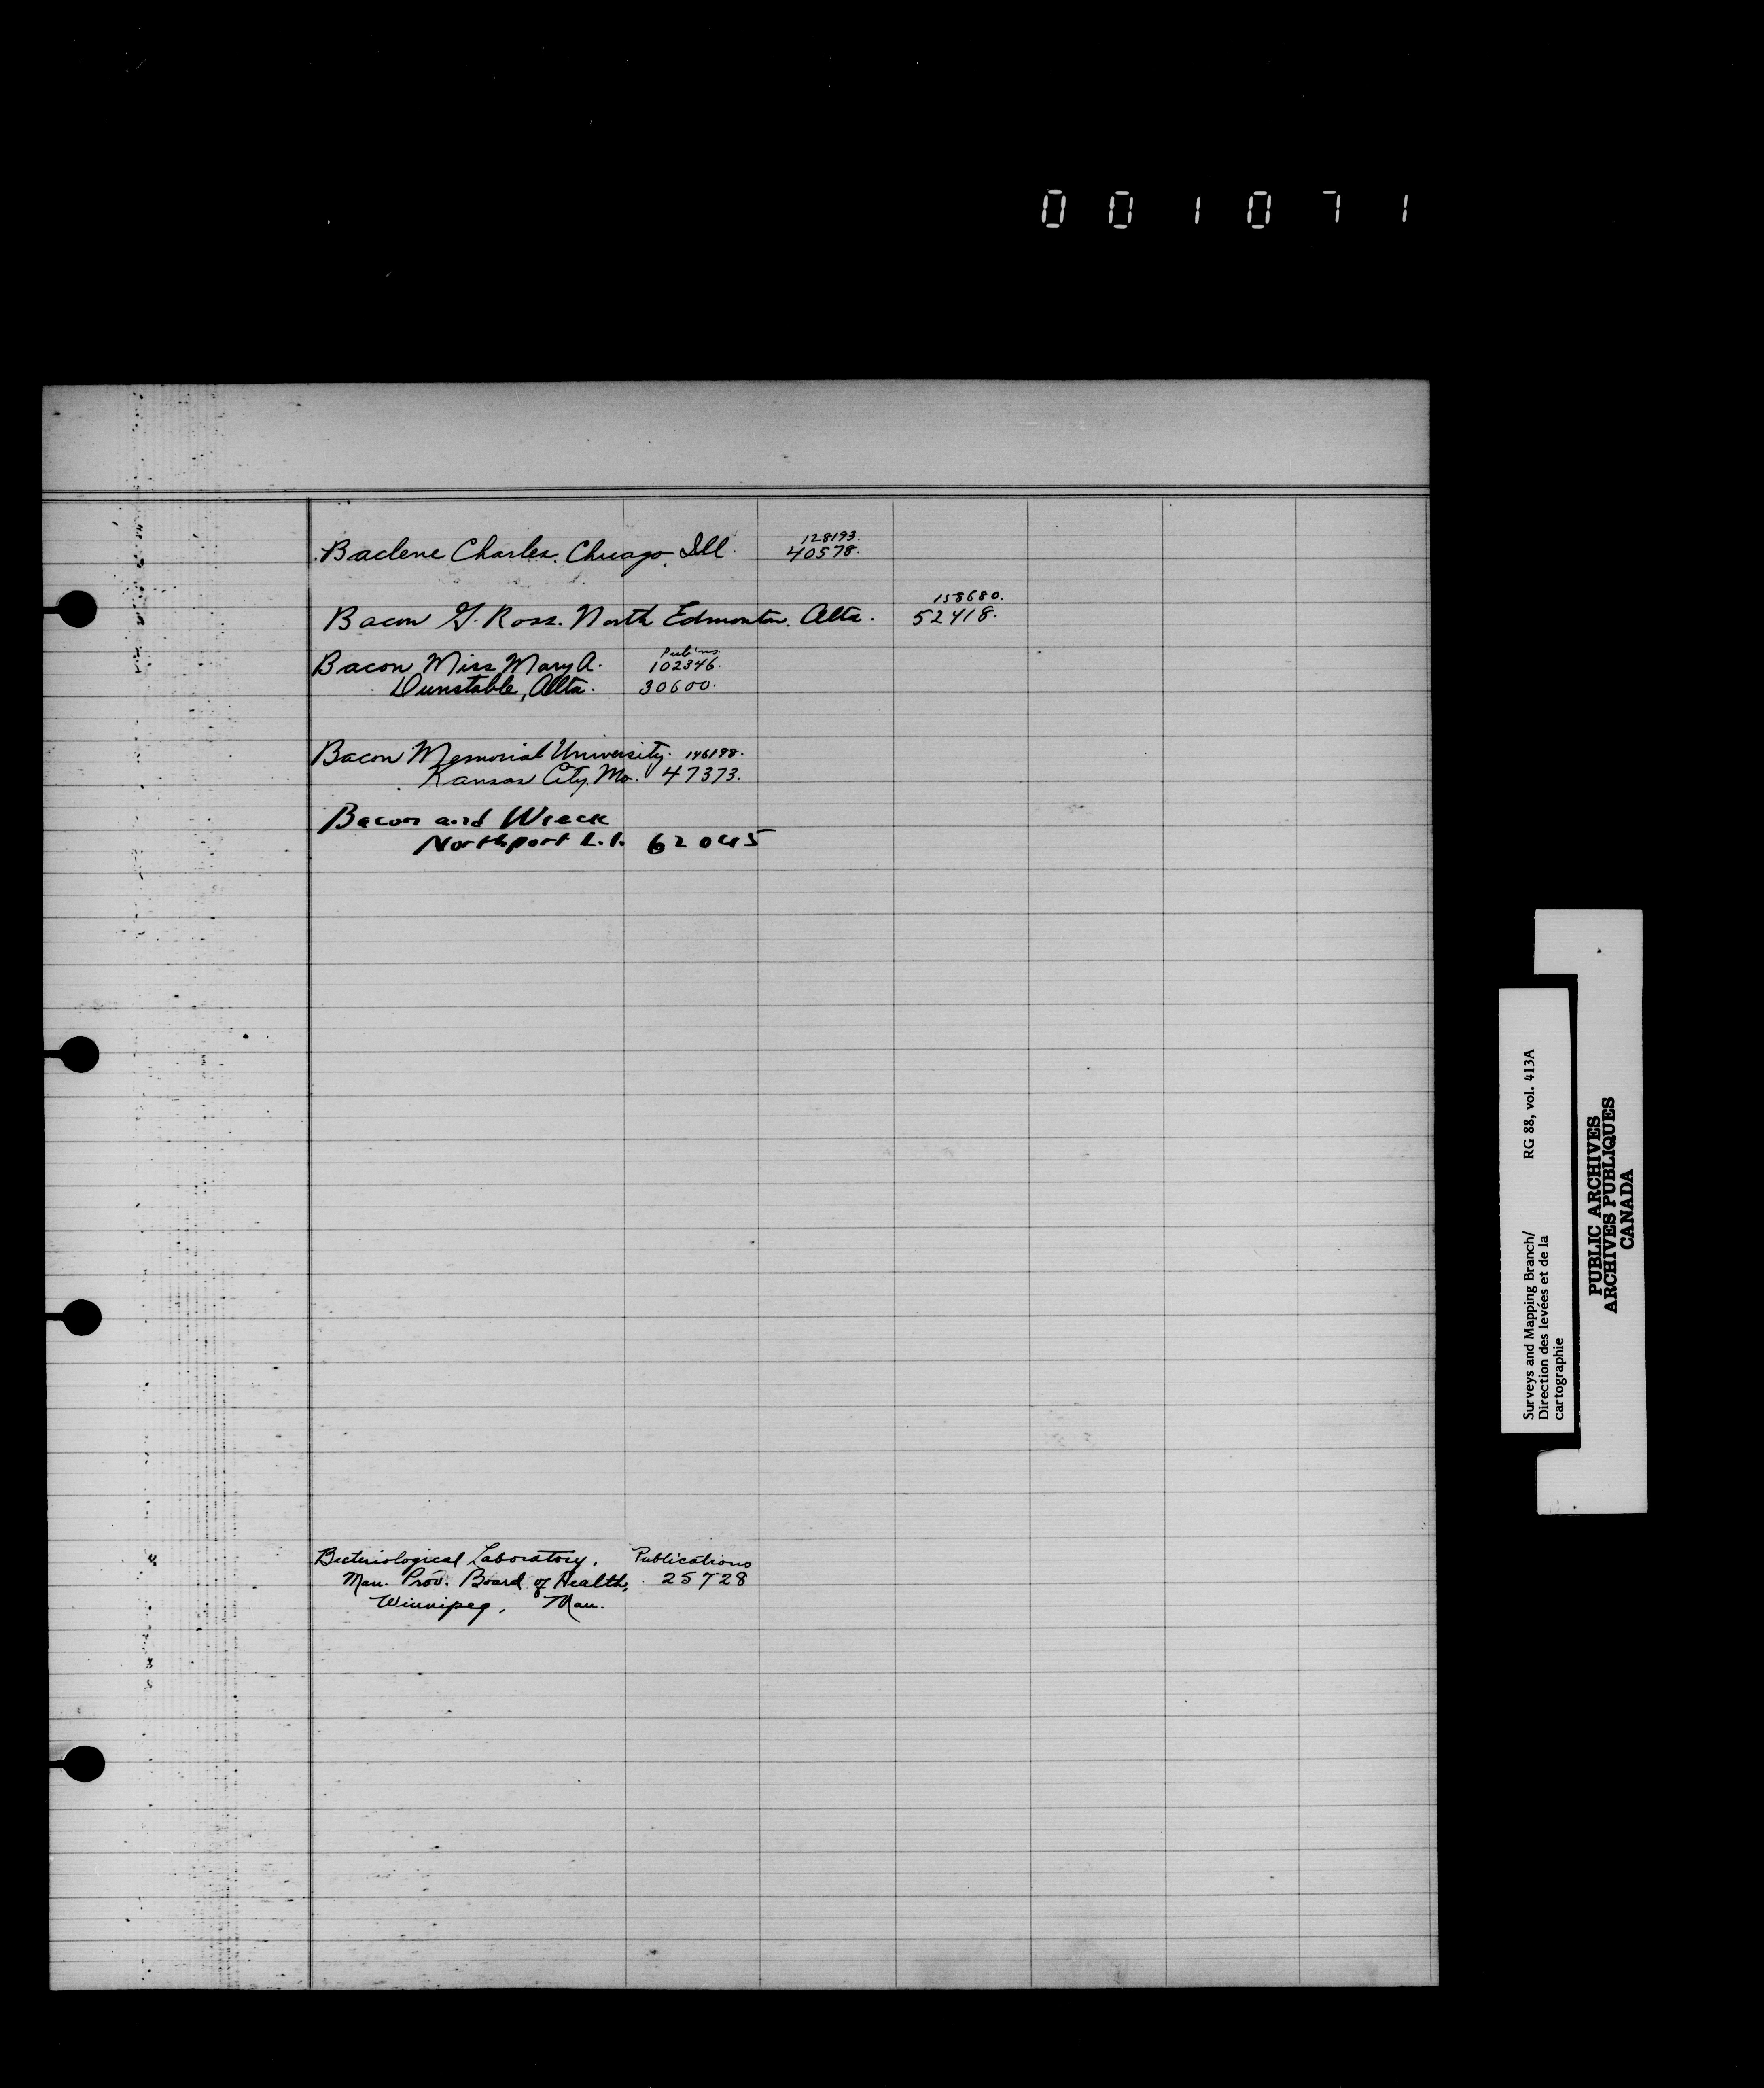 001071
128193.
Baclene Charles. Chicago, Ill. 40578.
158680.
Bacon G. Ross. North Edmonton. Alta. 52418.
Pub'ns
Bacon Miss Mary A. 102346.
Dunstable, Alta. 30600.
Bacon Memorial University. 146198.
Kansas City, Mo. 47373.
Bacon and Wieck
Northport L.I. 62045
Bacteriological Laboratory, Publications
Man. Prov. Board of Health, 25728
Winnipeg, Man.
Surveys and Mapping Branch/ RG 88, vol. 413A
Direction des levées et de la
cartographie
PUBLIC ARCHIVES
ARCHIVES PUBLIQUES
CANADA